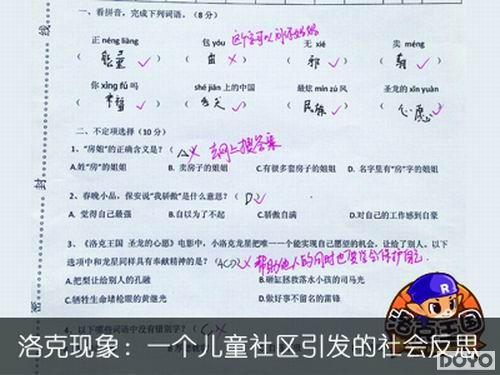 一、看拼音，完成下列词语。(8分)
这个字可以问你妈妈
正 néng liàng 包 yóu 无 xié 卖 méng
(能量✓) (✗) (邪✓) (萌✓)
你 xìng fú 吗 shé jiān 上的中国 最炫 mín zú 风 圣龙的 xīn yuàn
(幸福✓) (舌尖✓) (民族✓) (心愿✓)
二、不定项选择 (10分)
1、“房姐”的正确含义是? (A✗ 去网上搜答案
A.姓“房”的姐姐 B. 卖房子的姐姐 C.有很多套房子的姐姐 D. 名字里有“房”字的姐姐
2、春晚小品，保安说“我骄傲”是什么意思? (D✓)
A. 觉得自己最强 B.自以为了不起 C.骄傲自满 D.对自己的工作感到自豪
3、《洛克王国 圣龙的心愿》电影中，小洛克龙星把唯一一个能实现自己愿望的机会，让给了别人。以下
选项中和龙星同样具有奉献精神的是? (ACD✗ 帮助他人的同时也要学会保护自己
A.把梨让给别人的孔融 B.砸缸拯救落水小孩的司马光
C.牺牲生命堵枪眼的黄继光 D.做好事不留名的雷锋
4、以下哪些词语中没有错别字?
线
封
密
R
洛克王国
DOYO
洛克现象：一个儿童社区引发的社会反思